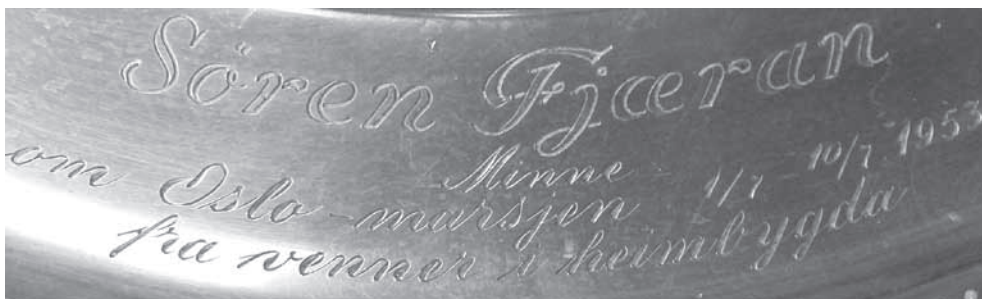 Sören Fjæran
Minne
om Oslo-marsjen 1/7 - 10/7 1953
fra venner i heimbygda